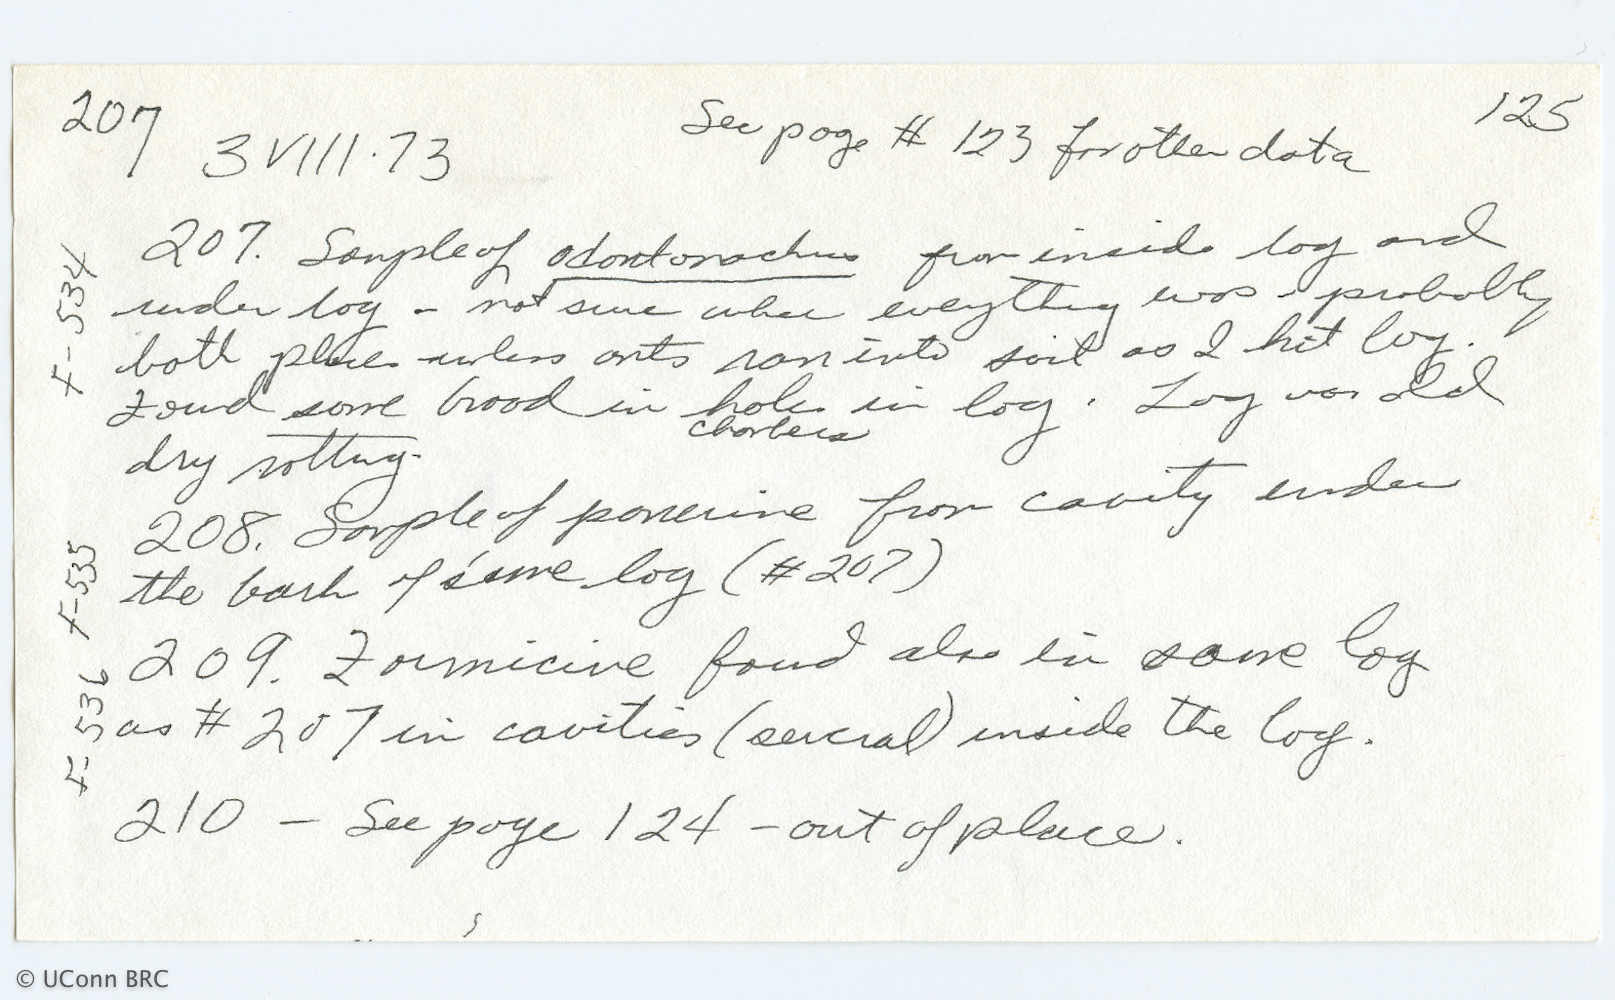 207
3 VIII·73
See page # 123 for other data
125
F-534
207. Sample of Odontomachus from inside log and
under log - not sure where everything was - probably
both places unless ants ran into soil as I hit log.
Found some brood in holes in log. Log was old
chambers
dry rotting.
F-535
208. Sample of ponerine from cavity under
the bark of same log (# 207)
F-536
209. Formicine found also in same log
as # 207 in cavities (several) inside the log.
210 - See page 124 - out of place.
© UConn BRC